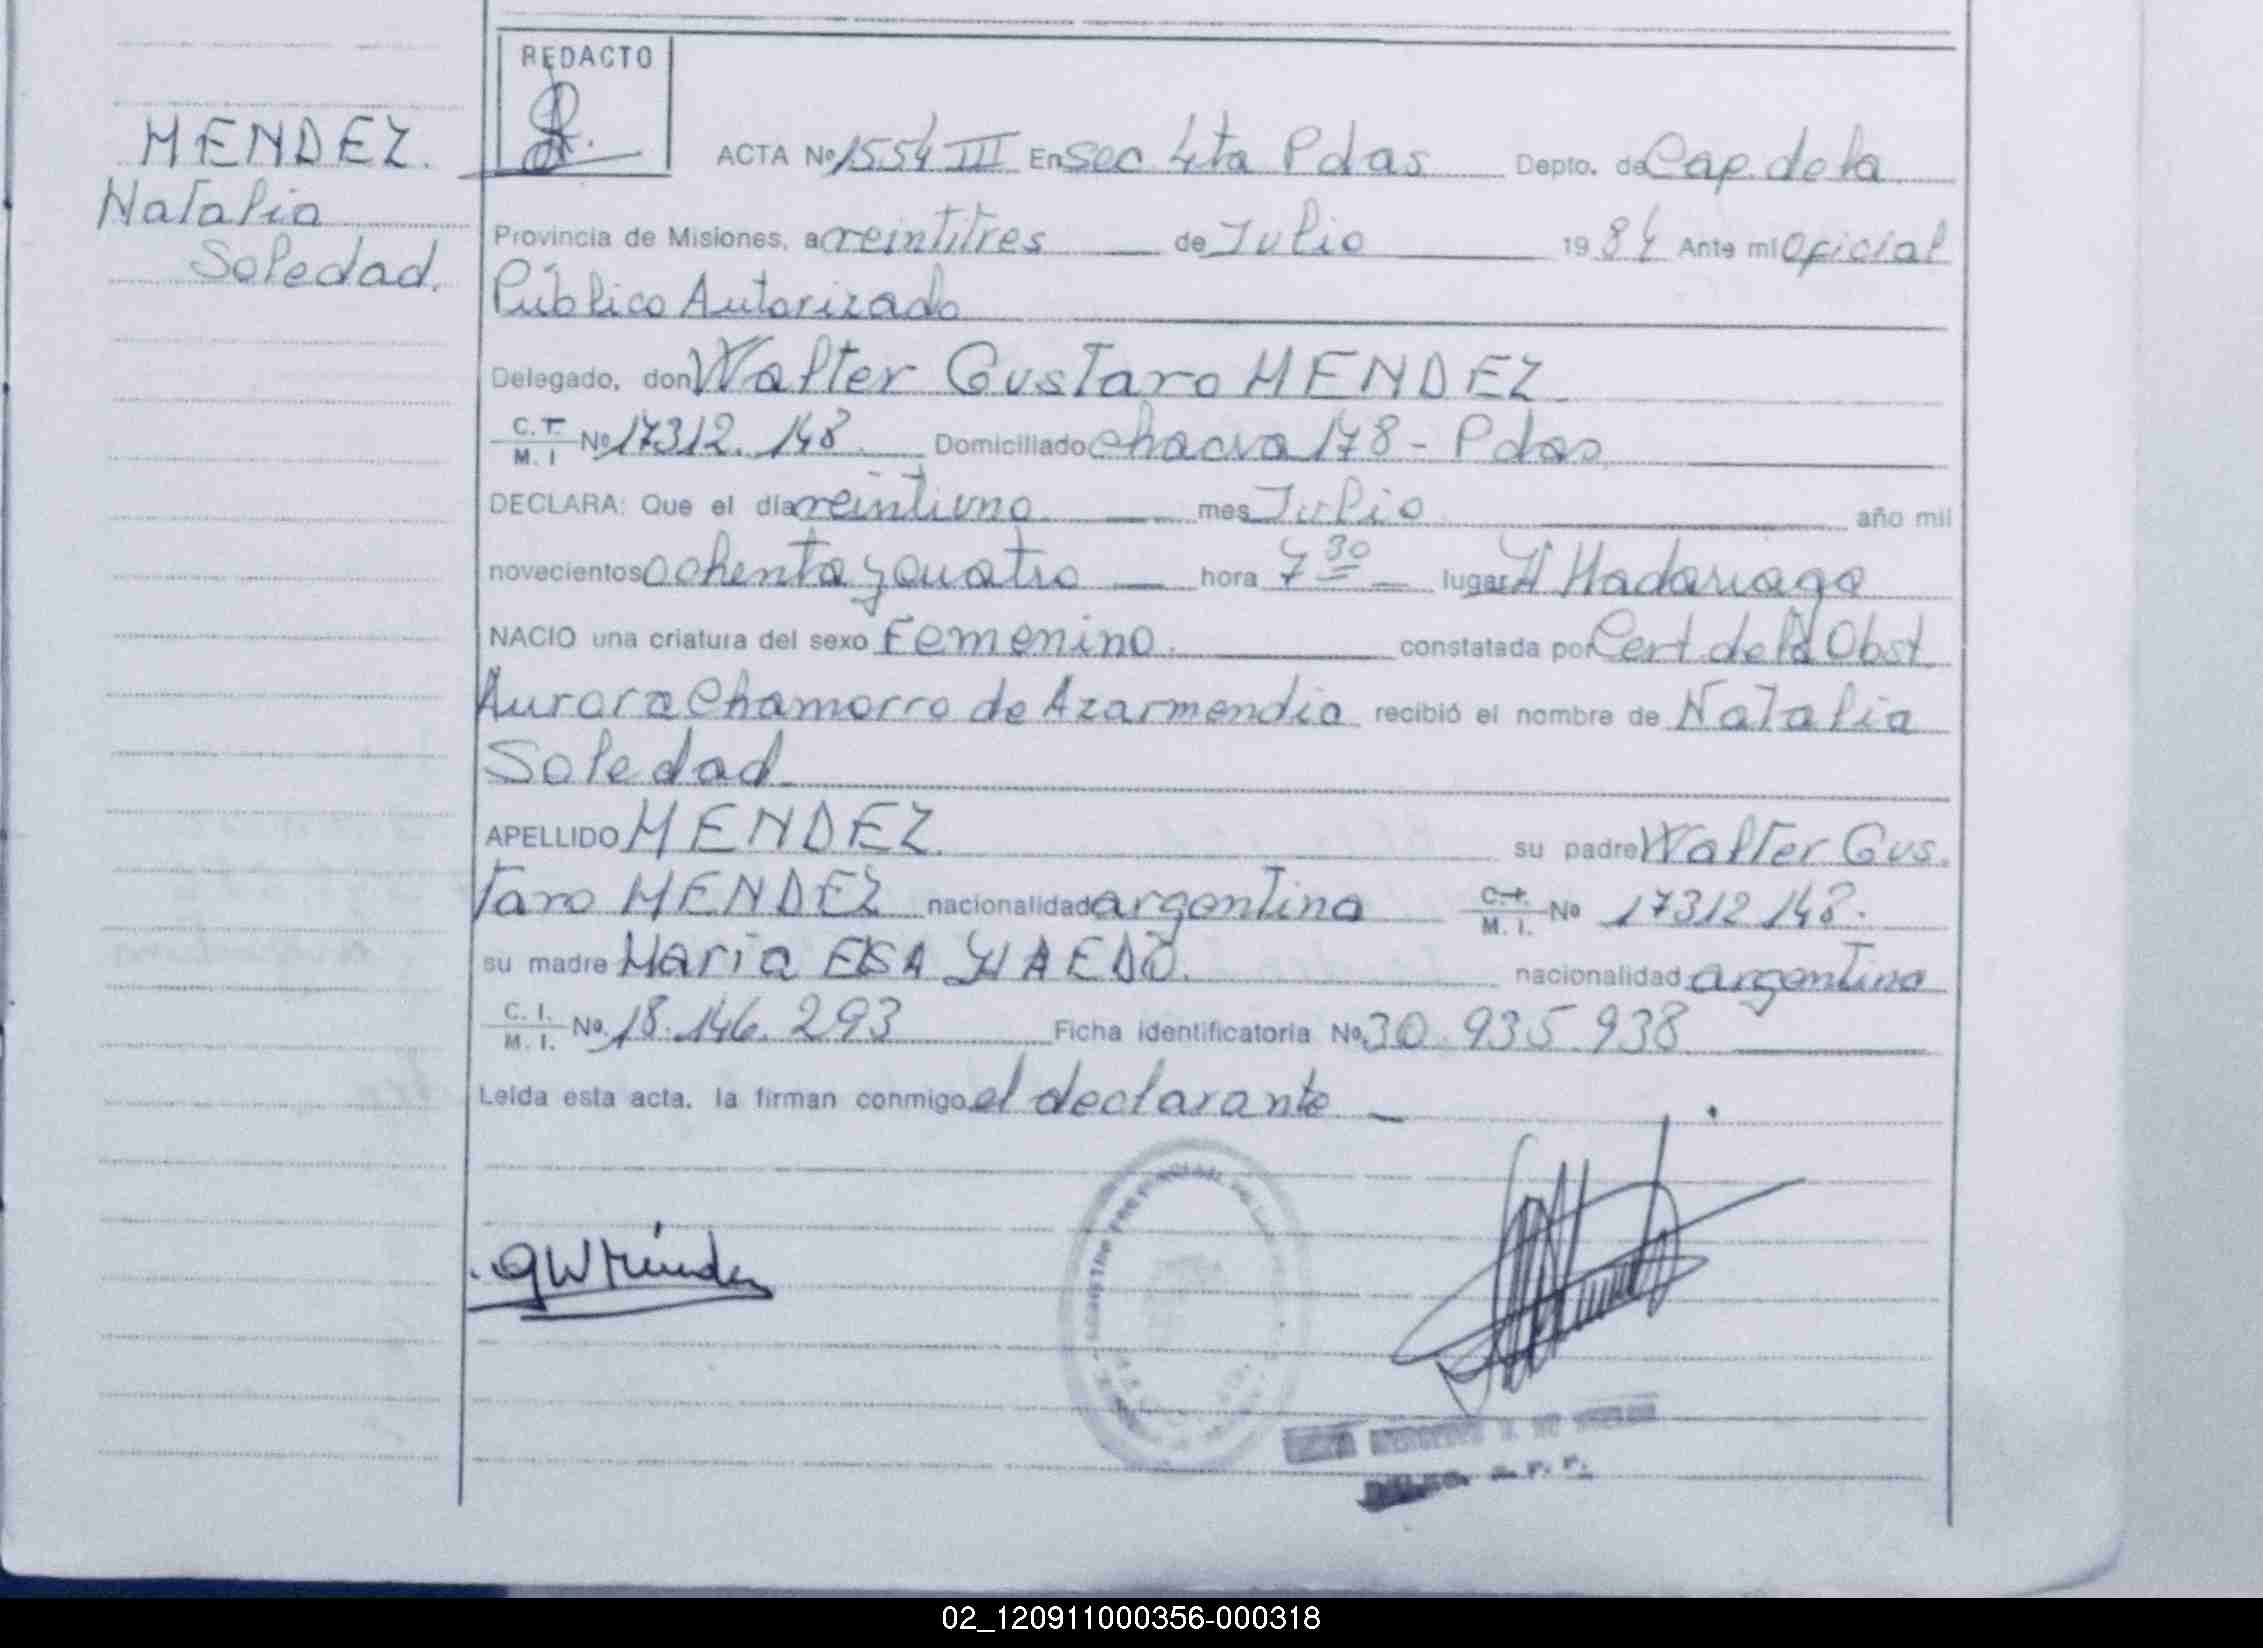 REDACTO
MENDEZ.
Natalia
Soledad.
ACTA Nº 1554 III En Sec 4ta Pdas Depto. de Cap. de la
Provincia de Misiones, a veintitres de Julio 1984 Ante mi Oficial
Público Autorizado
Delegado, don Walter Gustavo MENDEZ
C.I. M.I Nº 17312.148 Domiciliado chacra 178 - Pdas
DECLARA: Que el día veintiuno mes Julio año mil
novecientos ochenta y cuatro hora 7 30 lugar H Madariaga
NACIO una criatura del sexo Femenino. constatada por Cert. de la Obst
Aurora Chamorro de Azarmendia recibió el nombre de Natalia
Soledad
APELLIDO MENDEZ su padre Walter Gus.
tavo MENDEZ nacionalidad argentina C.I. M.I. Nº 17312148.
su madre Maria ELSA HAEDO. nacionalidad argentina
C.I. M.I. Nº. 18.146.293 Ficha identificatoria Nº 30.935.938
Leída esta acta, la firman conmigo el declarante
02_120911000356-000318